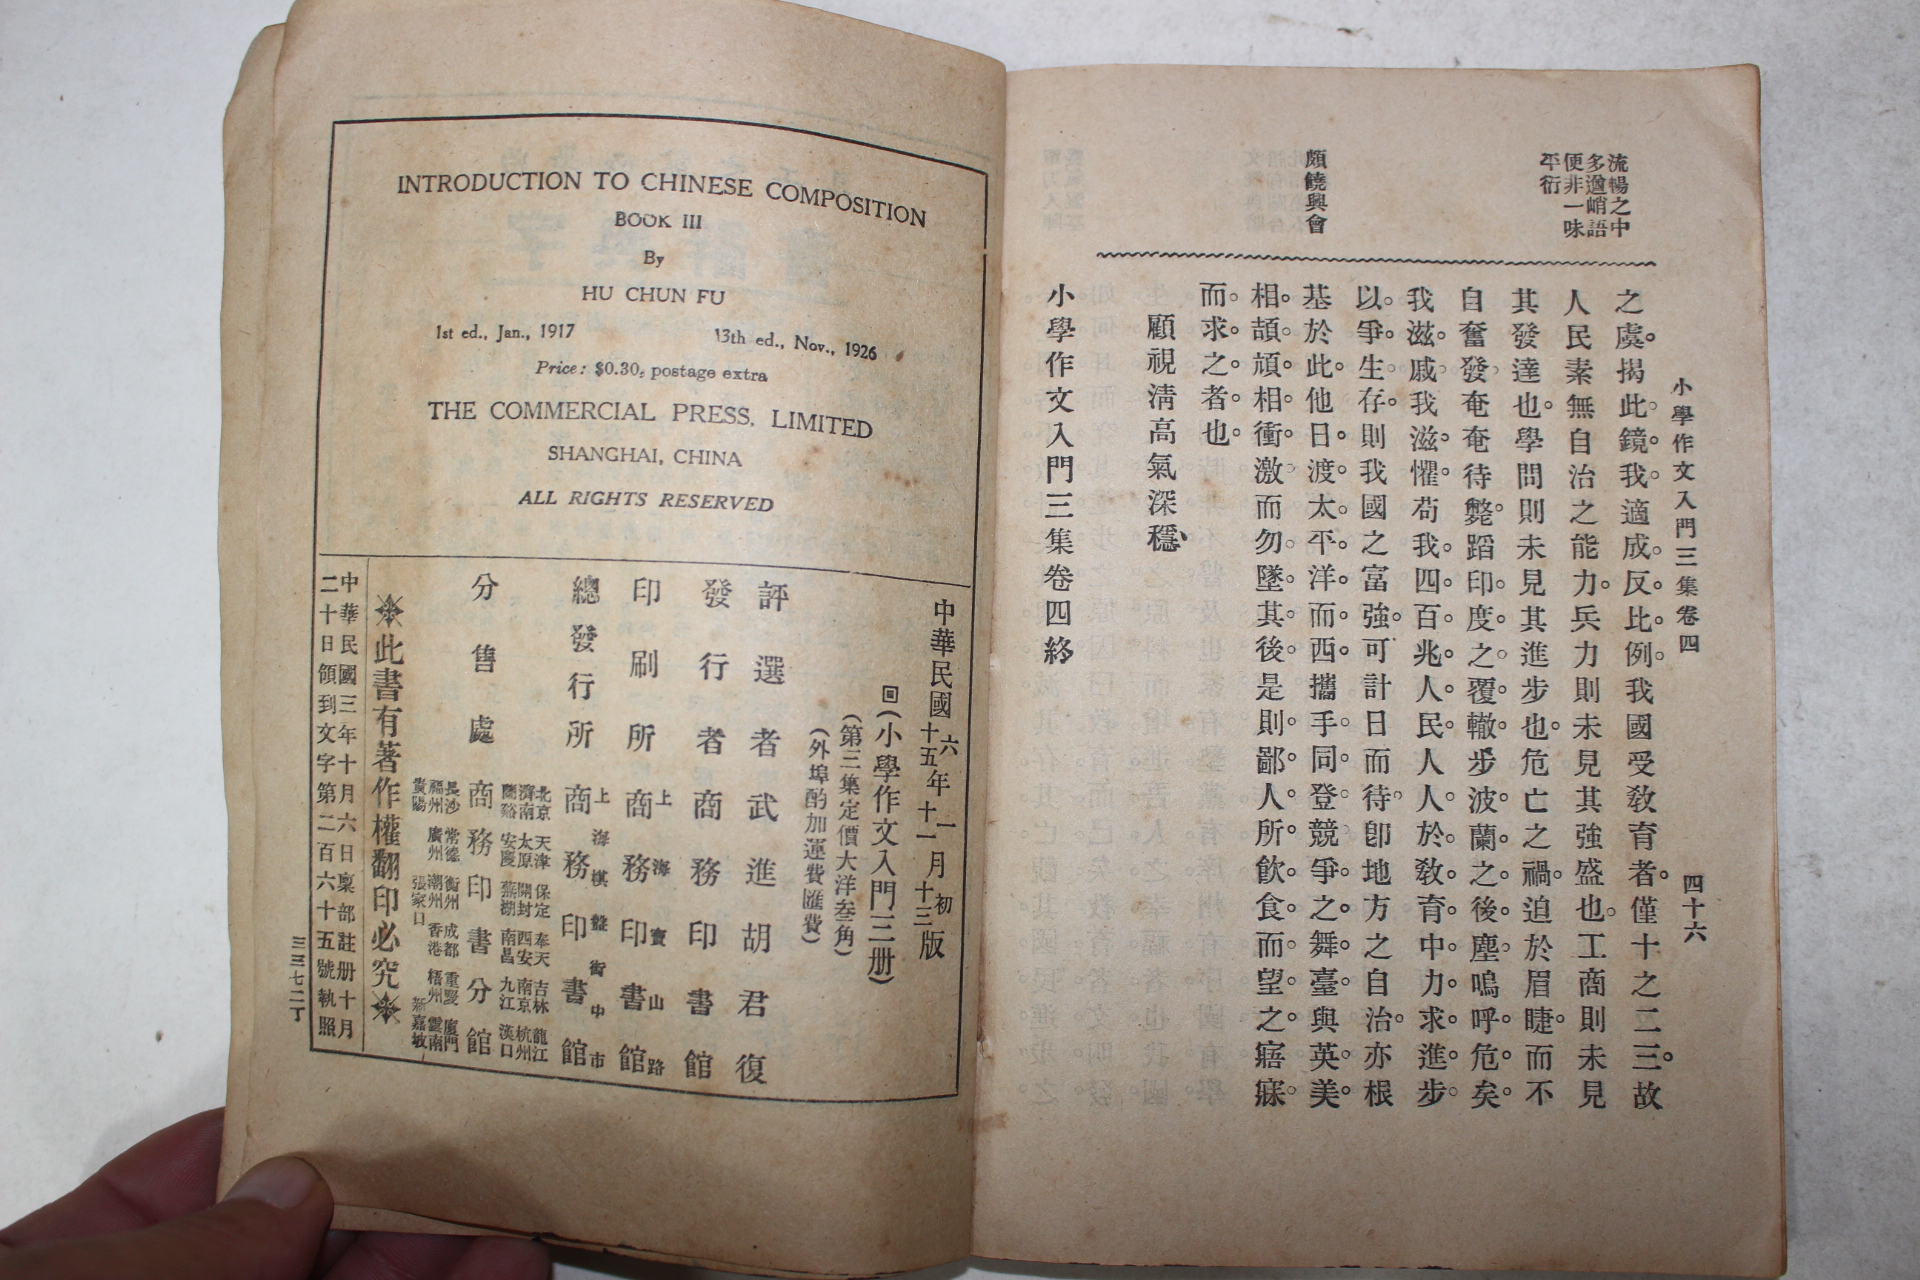 小學作文入門三集卷四
四十六
流暢之中
多遒峭語
便非一味
平衍
頗饒興會
之虞揭此鏡我適成反比例我國受敎育者僅十之二三故
人民素無自治之能力兵力則未見其強盛也工商則未見
其發達也學問則未見其進步也危亡之禍迫於眉睫而不
自奮發奄奄待斃蹈印度之覆轍步波蘭之後塵嗚呼危矣
我滋戚我滋懼苟我四百兆人民人人於敎育中力求進步
以爭生存則我國之富強可計日而待卽地方之自治亦根
基於此他日渡太平洋而西攜手同登競爭之舞臺與英美
相頡頏相衝激而勿墜其後是則鄙人所飮食而望之寤寐
而求之者也
顧視清高氣深穩
小學作文入門三集卷四終
INTRODUCTION TO CHINESE COMPOSITION
BOOK III
By
HU CHUN FU
1st ed., Jan., 1917 13th ed., Nov., 1926
Price: $0.30, postage extra
THE COMMERCIAL PRESS, LIMITED
SHANGHAI, CHINA
ALL RIGHTS RESERVED
中華民國六年一月初版
十五年十一月十三版
(小學作文入門三册)
(第三集定價大洋叁角)
(外埠酌加運費匯費)
評選者 武進胡君復
發行者 商務印書館
印刷所 上海寶山路 商務印書館
總發行所 上海棋盤街中市 商務印書館
分售處 商務印書分館
北京 天津 保定 奉天 吉林 龍江
濟南 太原 開封 西安 南京 杭州
蘭谿 安慶 蕪湖 南昌 九江 漢口
長沙 常德 衡州 成都 重慶 廈門
福州 廣州 潮州 香港 梧州 雲南
貴陽 張家口 新嘉坡
此書有著作權翻印必究
中華民國三年十月六日稟部註册十月
二十日領到文字第二百六十五號執照
三三七二丁